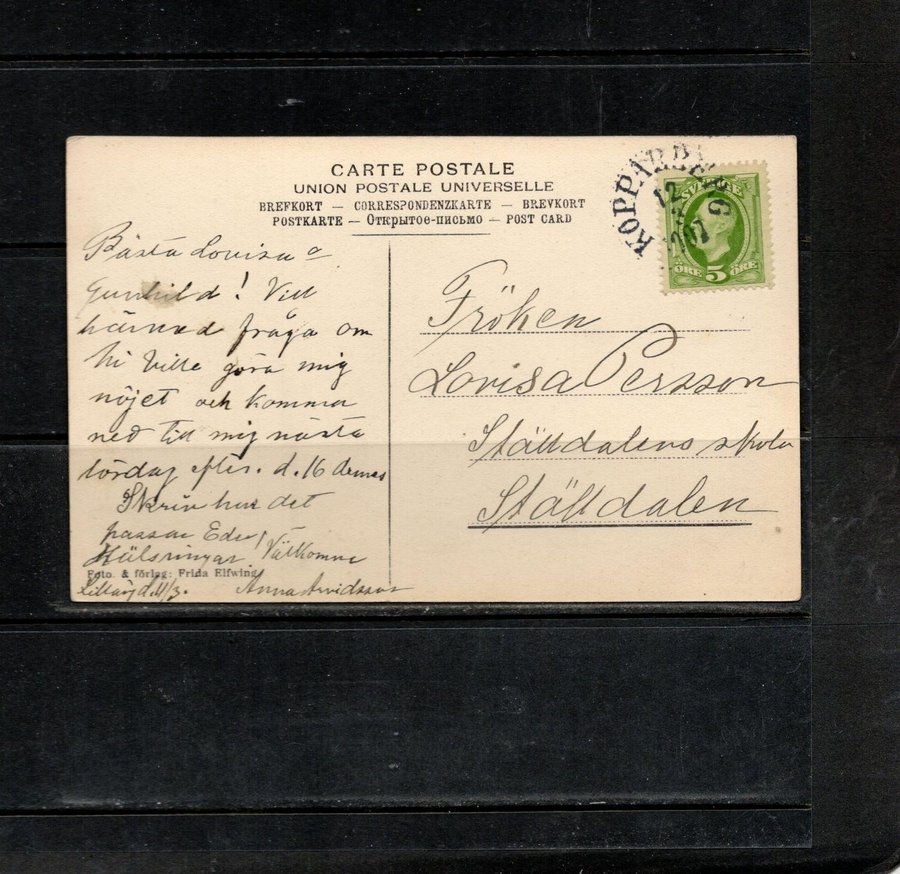 CARTE POSTALE
UNION POSTALE UNIVERSELLE
BREFKORT — CORRESPONDENZKARTE — BREVKORT
POSTKARTE — Открытое-письмо — POST CARD
KOPPARBERG
12
1907
SVERIGE
ÖRE 5 ÖRE
Bästa Lovisa o
Gunhild! Vill
härmed fråga om
Ni Ville göra mig
nöjet och komma
ned till mig nästa
lördag efter. d. 16 dennes
Skriv hur det
passar Eder!
Hälsningar Välkomna
Foto. & förlag: Frida Elfwing
d. 11/3. Anna Arvidsson
Fröken
Lovisa Persson
Ställdalens skola
Ställdalen